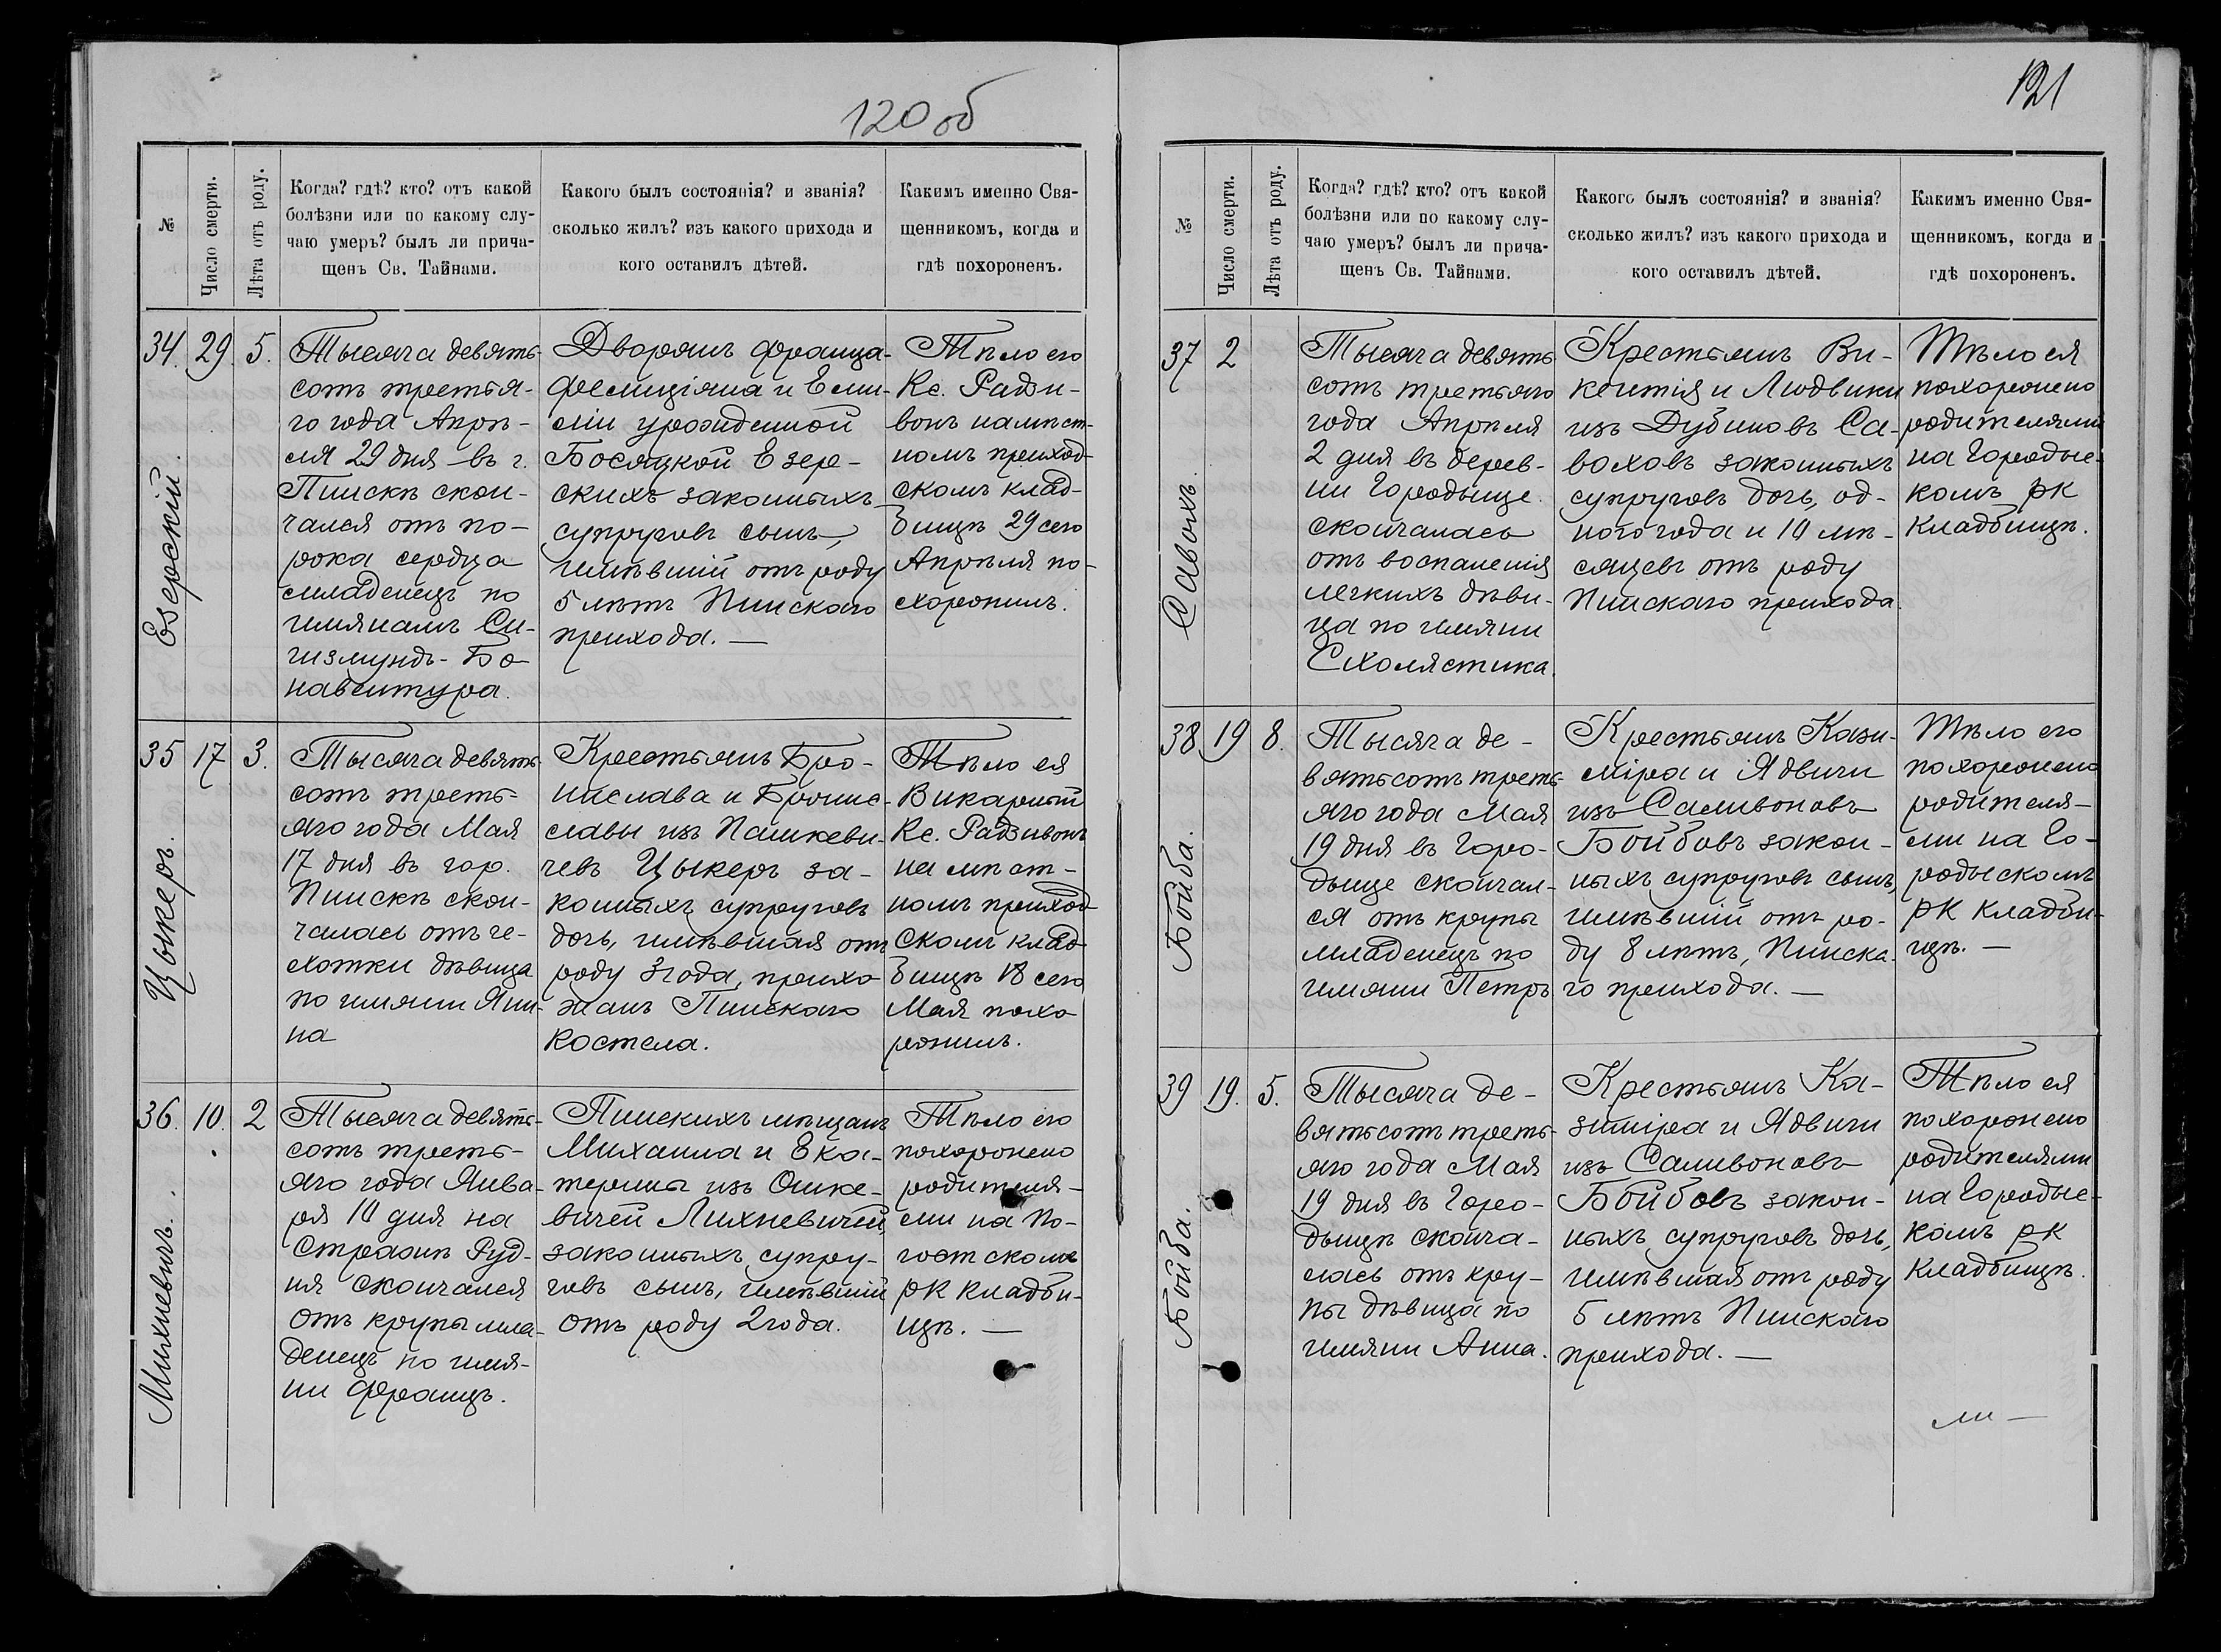 120 об
№
Число смерти.
Лѣта отъ роду.
Когда? гдѣ? кто? отъ какой
болѣзни или по какому слу-
чаю умеръ? былъ ли прича-
щенъ Св. Тайнами.
Какого былъ состоянія? и званія?
сколько жилъ? изъ какого прихода и
кого оставилъ дѣтей.
Какимъ именно Свя-
щенникомъ, когда и
гдѣ похороненъ.
34. 29. 5.
Езерскій.
Тысяча девять-
сотъ третья-
го года Апрѣ-
ля 29 дня въ г.
Пинскѣ скон-
чался отъ по-
рока сердца
младенецъ по
имянамъ Си-
гизмундъ-Бо
навентура.
Дворянъ Франца-
Фелиціяна и Еми-
ліи урожденной
Босяцкой Езер-
скихъ законныхъ
супруговъ сынъ,
имѣвшій отъ роду
5 лѣтъ Пинскаго
прихода. —
Тѣло его
Кс. Радзи-
вонъ на мѣст-
номъ приход-
скомъ клад-
бищѣ 29 сего
Апрѣля по-
хоронилъ.
35 17 3.
Цыкеръ.
Тысяча девять-
сотъ треть-
яго года Мая
17 дня въ гор.
Пинскѣ скон-
чалась отъ че-
хотки дѣвица
по имяни Яни-
на
Крестьянъ Бро-
нислава и Бронис-
лавы изъ Пашкеви-
чевъ Цыкеръ за-
конныхъ супруговъ
дочь, имѣвшая отъ
роду 3 года, прихо
жанъ Пинскаго
Костела.
Тѣло ея
Викарный
Кс. Радзивонъ
на мѣст-
номъ приход
скомъ клад-
бищѣ 18 сего
Мая похо
ронилъ.
36. 10. 2
Михневичъ.
Тысяча девять-
сотъ треть-
яго года Янва-
ря 10 дня на
Стражѣ Руд-
ня скончался
отъ крупы мла-
денецъ по имя-
ни Францъ.
Пинскихъ мѣщанъ
Михаила и Ека-
терины изъ Ошке-
вичей Михневичей,
законныхъ супру-
говъ сынъ, имѣвшій
отъ роду 2 года.
Тѣло его
похоронено
родителя-
ми на По-
гостскомъ
РК кладби-
щѣ. —
121
№
Число смерти.
Лѣта отъ роду.
Когда? гдѣ? кто? отъ какой
болѣзни или по какому слу-
чаю умеръ? былъ ли прича-
щенъ Св. Тайнами.
Какого былъ состоянія? и званія?
сколько жилъ? изъ какого прихода и
кого оставилъ дѣтей.
Какимъ именно Свя-
щенникомъ, когда и
гдѣ похороненъ.
37 2
Тысяча девять
сотъ третьяго
года Апрѣля
2 дня въ дерев-
ни Городыще
скончалась
отъ воспаленія
легкихъ дѣви-
ца по имяни
Схолястика.
Крестьянъ Ви-
кентія и Людвики
изъ Дубиновъ Са-
воховъ законныхъ
супруговъ дочь, од-
ного года и 10 мѣ-
сяцевъ отъ роду
Пинскаго прихода.
Тѣло ея
похоронено
родителями
на Городыс-
комъ РК
Кладбищѣ.
38 19 8.
Бойба.
Тысяча де-
вятьсотъ треть-
яго года Мая
19 дня въ Горо-
дыще скончал-
ся отъ крупы
младенецъ по
имяни Петръ
Крестьянъ Кази-
міра и Ядвиги
изъ Саливоновъ
Бойбовъ закон-
ныхъ супруговъ сынъ,
имѣвшій отъ ро-
ду 8 лѣтъ, Пинска-
го прихода. —
Тѣло его
похоронено
родителя-
ми на Го-
родыскомъ
РК Кладби-
щѣ. —
39 19. 5.
Бойба.
Тысяча де-
вятьсотъ треть-
яго года Мая
19 дня въ Горо-
дыщѣ сконча-
лась отъ кру-
пы дѣвица по
имяни Анна.
Крестьянъ Ка-
зиміра и Ядвиги
изъ Саливоновъ
Бойбовъ закон-
ныхъ супруговъ дочь,
имѣвшая отъ роду
5 лѣтъ Пинскаго
прихода. —
Тѣло ея
похоронено
родителями
на Городыс-
комъ РК
Кладбищѣ.